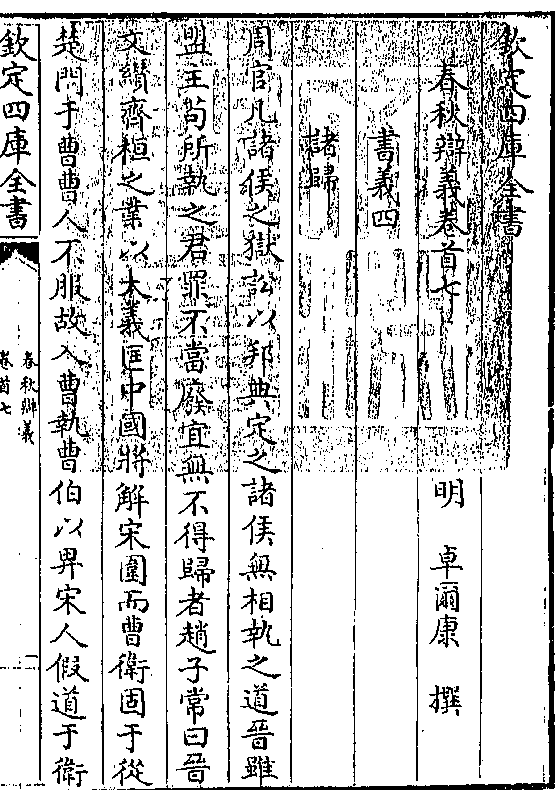 欽定四庫全書
春秋辯義卷首七　　　明　卓爾康　撰
書義四
諸歸
周官凡諸侯之獄訟以邦典定之諸侯無相執之道晉雖
盟主苟所執之君罪不當廢宜無不得歸者趙子常曰晉
文纘齊桓之業以大義匡中國將解宋圍而曹衛固于從
楚門于曹曹人不服故入曹執曹伯以畀宋人假道于衛
欽定四庫全書
春秋辯義
卷首七
一